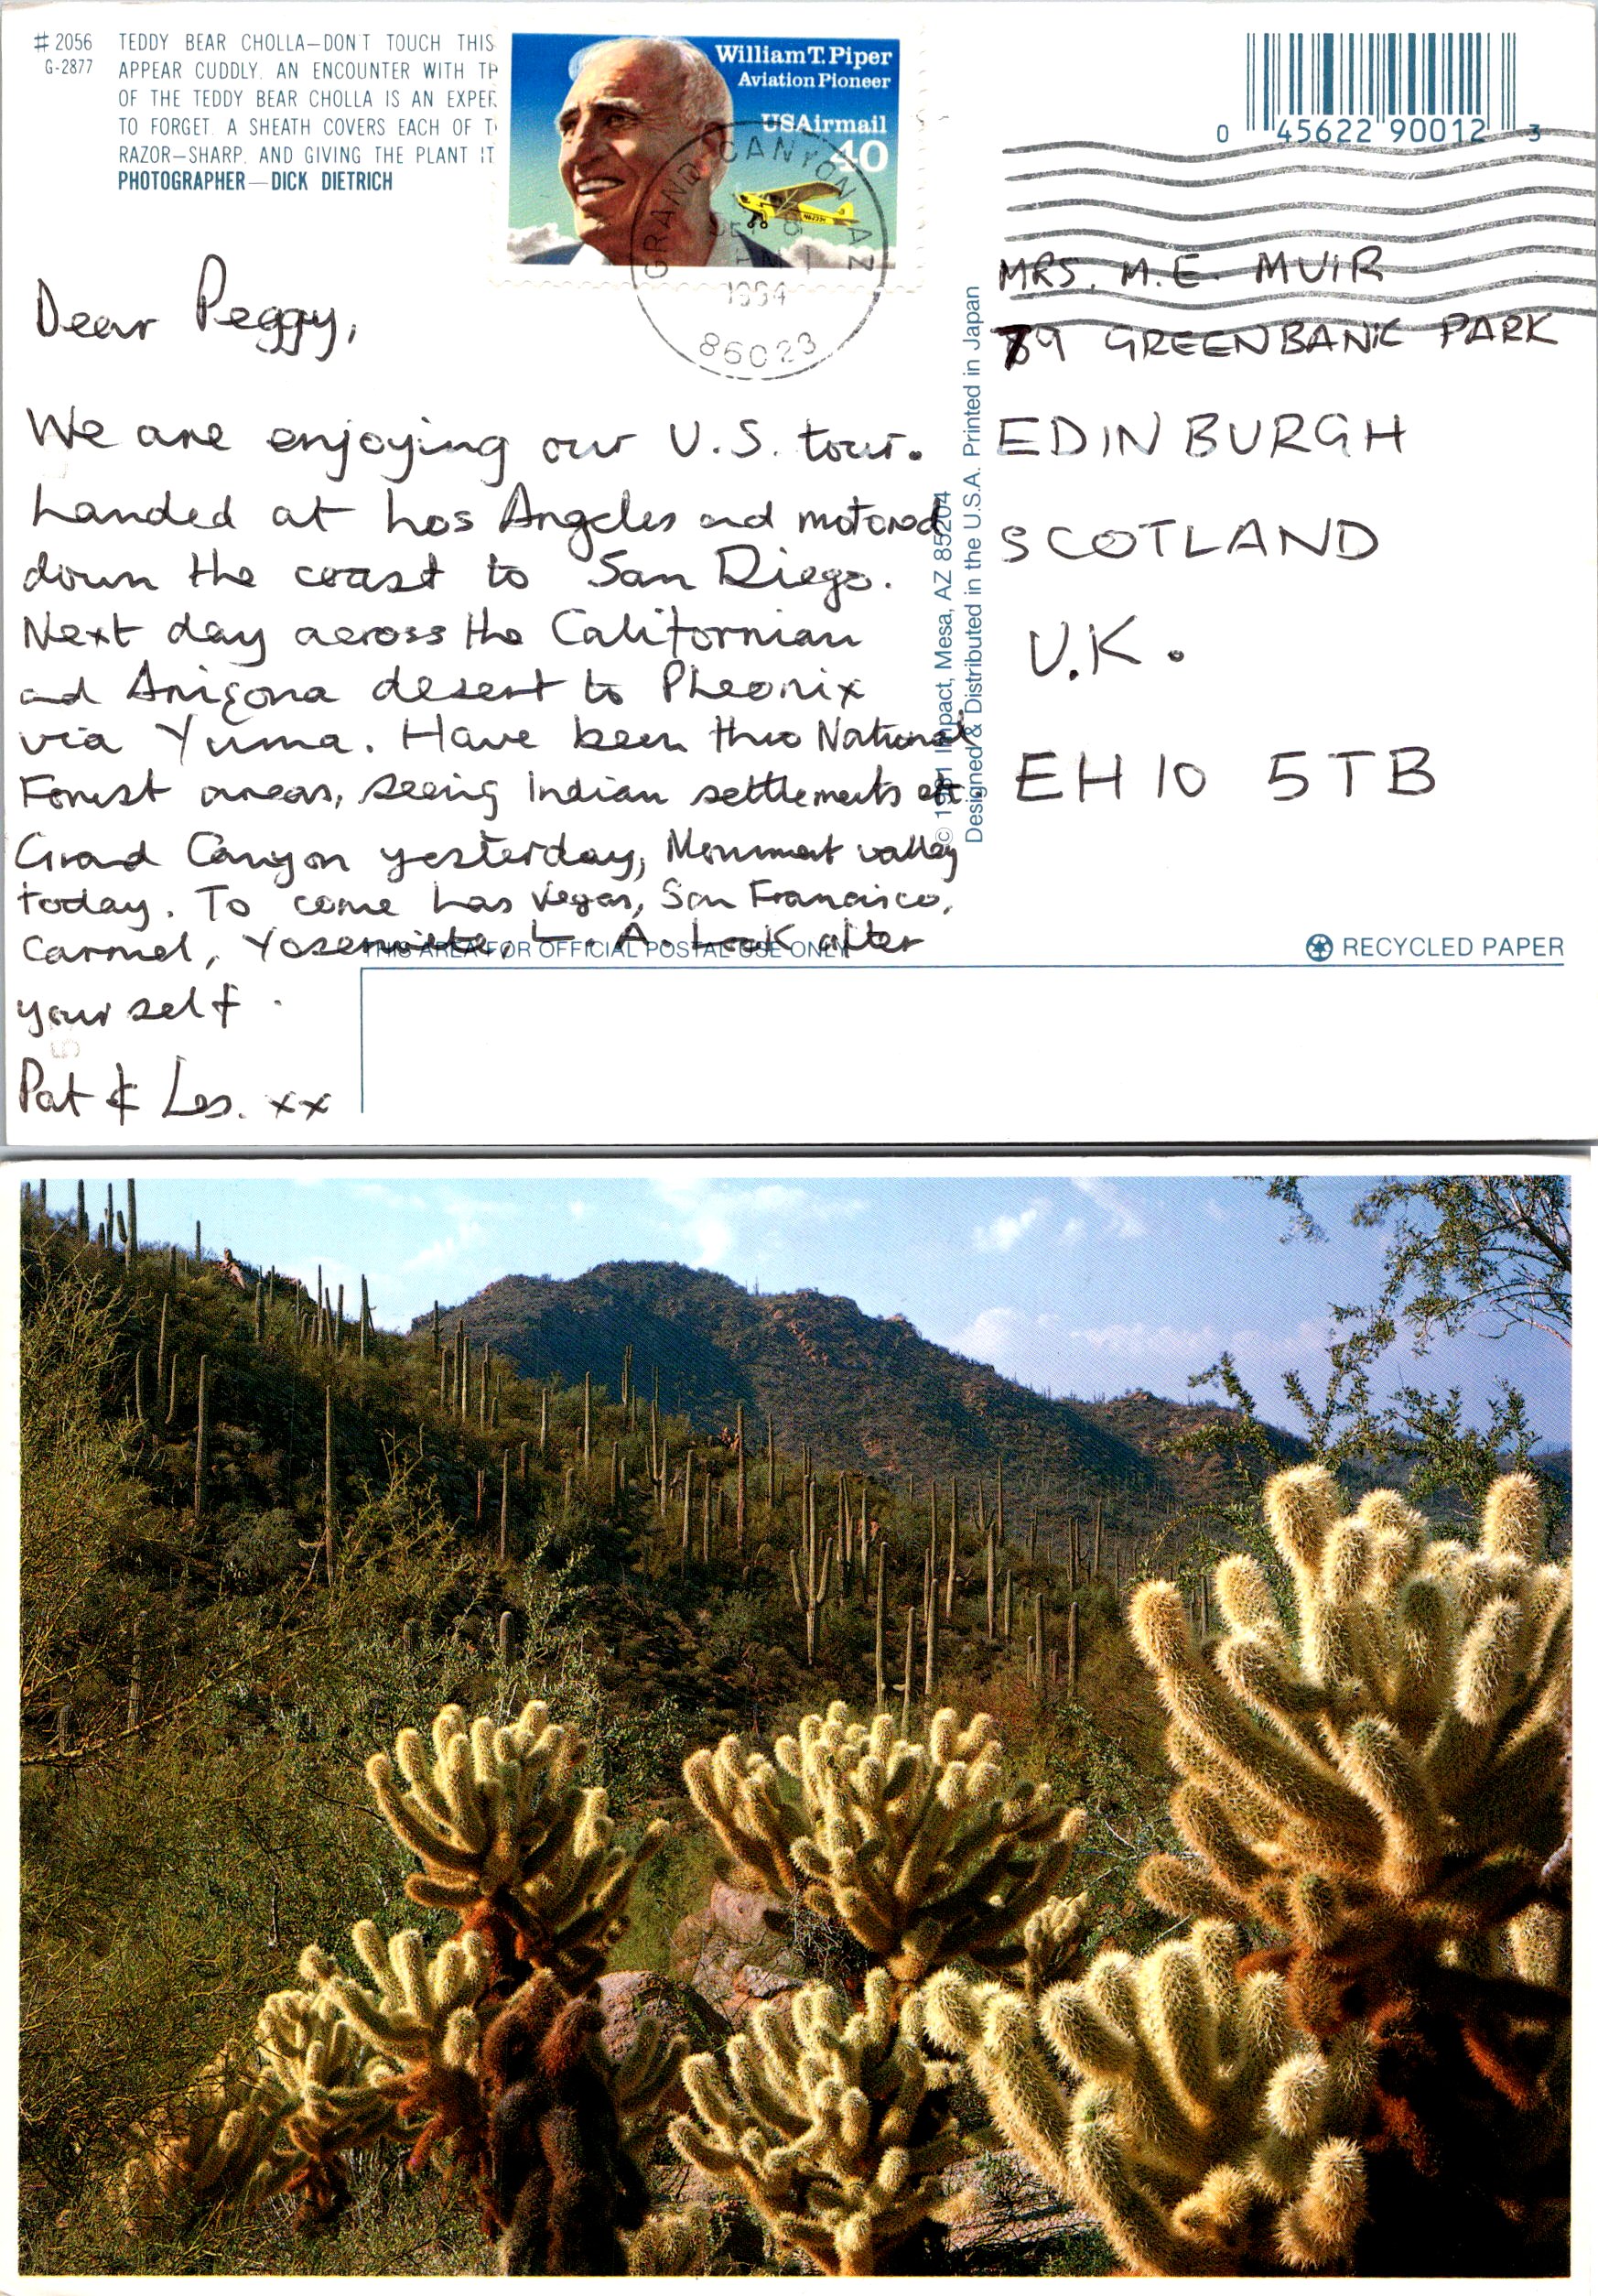 # 2056
G-2877
TEDDY BEAR CHOLLA—DON'T TOUCH THIS
APPEAR CUDDLY. AN ENCOUNTER WITH TH
OF THE TEDDY BEAR CHOLLA IS AN EXPER
TO FORGET. A SHEATH COVERS EACH OF T
RAZOR-SHARP. AND GIVING THE PLANT IT
PHOTOGRAPHER—DICK DIETRICH
William T. Piper
Aviation Pioneer
USAirmail
40
GRAND CANYON AZ
1994
86023
0 45622 90012 3
Dear Peggy,
We are enjoying our U.S. tour.
Landed at Los Angeles and motored
down the coast to San Diego.
Next day across the Californian
and Arizona desert to Pheonix
via Yuma. Have been thro National
Forest areas, seeing Indian settlements at
Grand Canyon yesterday, Monument valley
today. To come Las Vegas, San Francisco,
Carmel, Yosemite, L.A. Look after
yourself.
Pat & Les. xx
© 1991 Impact, Mesa, AZ 85204
Designed & Distributed in the U.S.A. Printed in Japan
MRS. M.E. MUIR
79 GREENBANK PARK
EDINBURGH
SCOTLAND
U.K.
EH10 5TB
THIS AREA FOR OFFICIAL POSTAL USE ONLY
RECYCLED PAPER